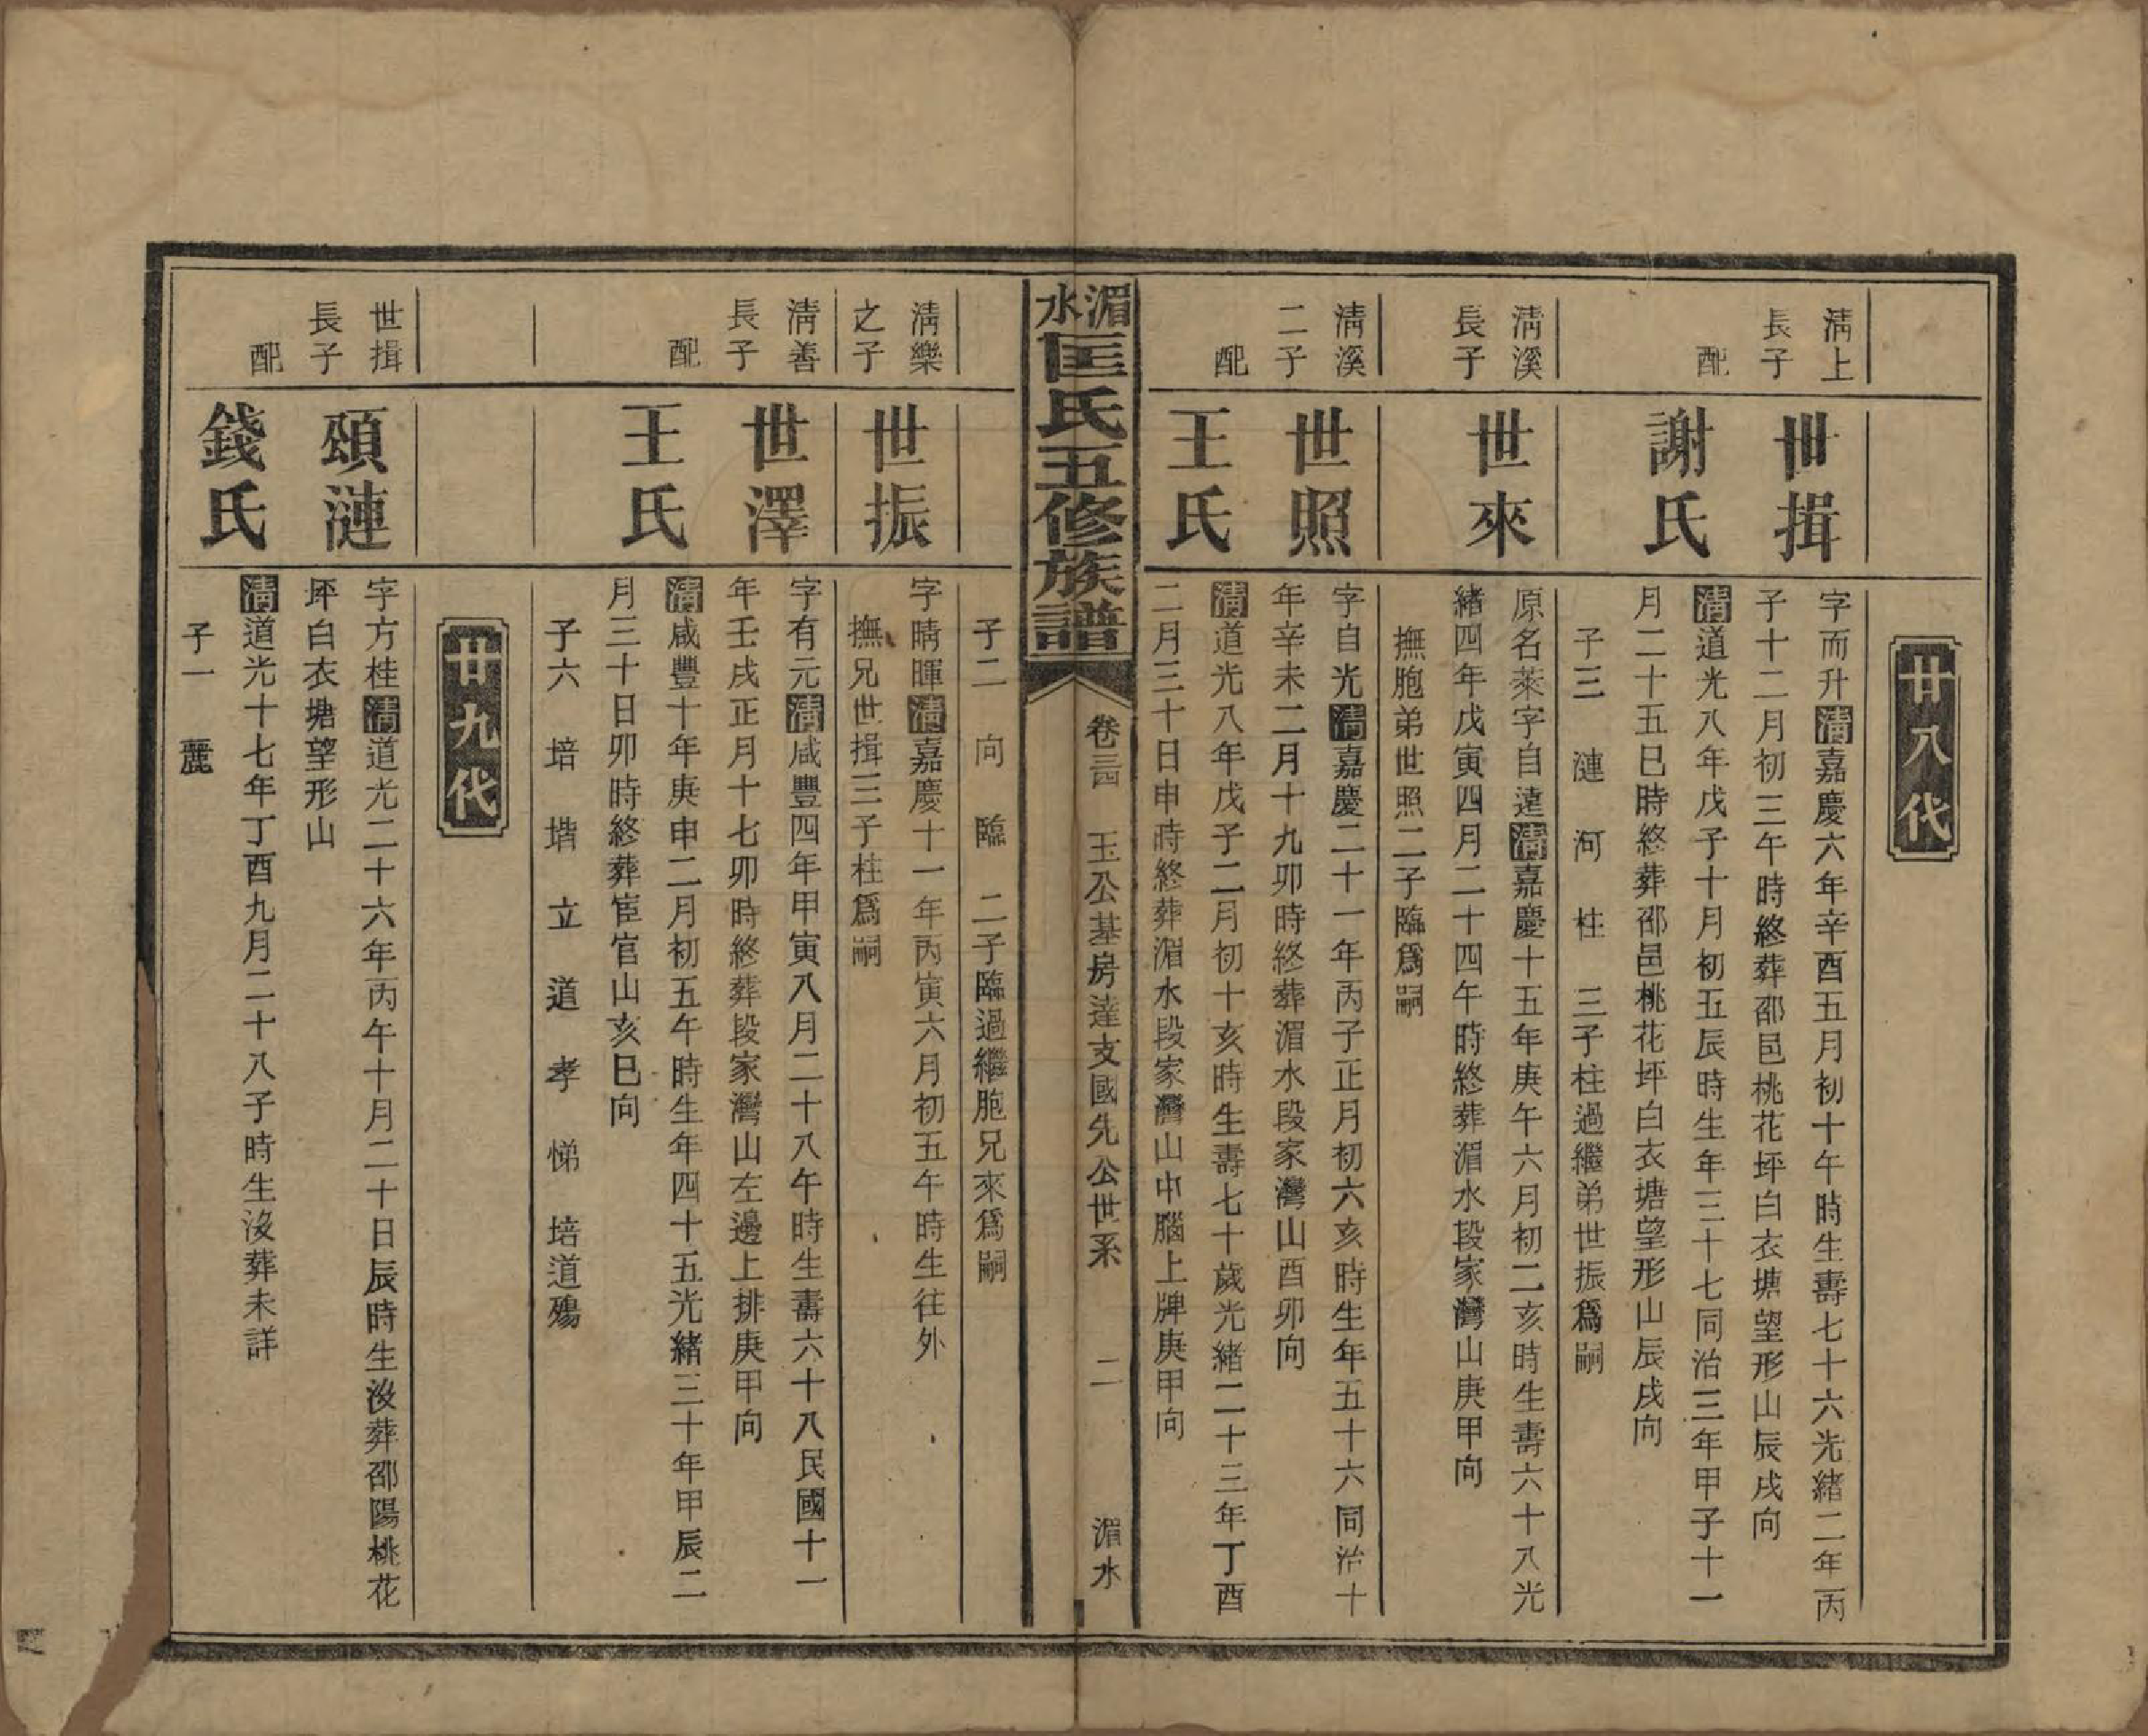 廿八代
清上
長子
世揖
字而升清嘉慶六年辛酉五月初十午時生壽七十六光緒二年丙
子十二月初三午時終葬邵邑桃花坪白衣塘望形山辰戌向
配
謝氏
清道光八年戊子十月初五辰時生年三十七同治三年甲子十一
月二十五巳時終葬邵邑桃花坪白衣塘望形山辰戌向
子三 漣 河 柱 三子柱過繼弟世振爲嗣
清溪
長子
世來
原名萊字自遠清嘉慶十五年庚午六月初二亥時生壽六十八光
緒四年戊寅四月二十四午時終葬湄水段家灣山庚甲向
撫胞弟世照二子臨爲嗣
清溪
二子
世照
字自光清嘉慶二十一年丙子正月初六亥時生年五十六同治十
年辛未二月十九卯時終葬湄水段家灣山酉卯向
配
王氏
清道光八年戊子二月初十亥時生壽七十歲光緒二十三年丁酉
二月三十日申時終葬湄水段家灣山中腦上牌庚甲向
湄水匡氏五修族譜
卷三四 玉公基房達支國先公世系 二 湄水
子二 向 臨 二子臨過繼胞兄來爲嗣
清樂
之子
世振
字晴暉清嘉慶十一年丙寅六月初五午時生往外
撫兄世揖三子柱爲嗣
清善
長子
世澤
字有元清咸豐四年甲寅八月二十八午時生壽六十八民國十一
年壬戌正月十七卯時終葬段家灣山左邊上排庚甲向
配
王氏
清咸豐十年庚申二月初五午時生年四十五光緒三十年甲辰二
月三十日卯時終葬宦官山亥巳向
子六 培 堦 立 道 孝 悌 培道殤
廿九代
世揖
長子
頌漣
字方桂清道光二十六年丙午十月二十日辰時生沒葬邵陽桃花
坪白衣塘望形山
配
錢氏
清道光十七年丁酉九月二十八子時生沒葬未詳
子一 麗